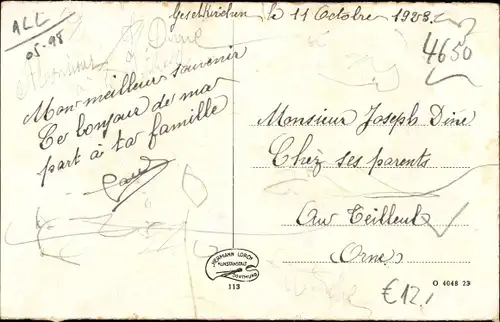 ALL
05-98
Gesetkirchen le 11 Octobre 1923.
4650
Mon meilleur souvenir
Le bonjour de ma
part à ta famille
Monsieur Joseph Dine
Chez ses parents
Au Teilleul
Orne
HERMANN LORCH
KUNSTANSTALT
DORTMUND
113
O 4048 23
€12,